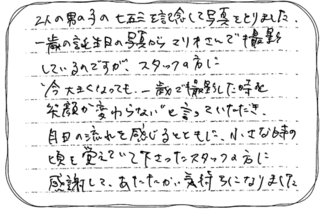 2人の男の子の七五三を記念して写真をとりました。
一歳の誕生日の写真からマリオさんで撮影
しているのですが スタッフの方に
"今大きくなっても、一歳で撮影した時と
笑顔が変わらない"と言っていただき、
月日の流れを感じるとともに、小さな時の
頃を覚えていて下さったスタッフの方に
感謝して、あたたかい気持ちになりました